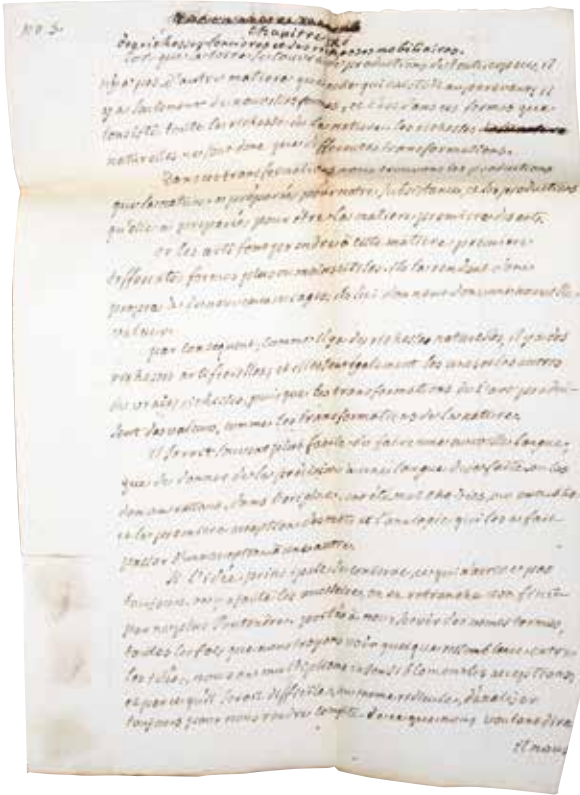 No 3.
Chapitre
Des richesses foncieres et des richesses mobiliaires.
la terre produit productions de toute espece, il
n'y a pas d'autre matiere que celle qui existoit auparavant, il
y a seulement de nouvelles formes, et c'est dans ces formes que
consiste toute la richesse de la nature. les richesses
naturelles ne sont donc que differentes transformations.
Dans ces transformations nous trouvons les productions
que la nature a préparées pour notre subsistance, et les productions
qu'elle a preparées pour être la matiere premiere des arts.
or les arts font prendre à cette matiere premiere
differentes formes plus ou moins utiles. ils la rendent donc
propre à de nouveaux usages, ils lui donnent donc une nouvelle
valeur.
par consequent, comme il y a des richesses naturelles, il y a des
richesses artificielles, et elles sont également les unes et les autres
de vraies richesses, puisque les transformations de l'art produi-
sent des valeurs, comme les transformations de la nature.
Il seroit souvent plus facile de faire une nouvelle langue,
que de donner de la précision à une langue deja faite. on les
dans l'origine, ont été mal choisies, ou on a oublié
et la premiere acception des mots et l'analogie qui les a fait
passer d'une acception à une autre.
Si l'idée principale se conserve, ce qui n'arrive pas
toujours, on y ajoute les accessoires, on en retranche on finit
par ne plus s'entendre. portés à nous servir des mêmes termes,
toutes les fois que nous croyons voir quelque ressemblance entre
les idées, nous en multiplions insensiblement les acceptions;
et parce qu'il seroit difficile, ou même ridicule, d'analiser
toujours pour nous rendre compte de ce que nous voulons dire
Il nous